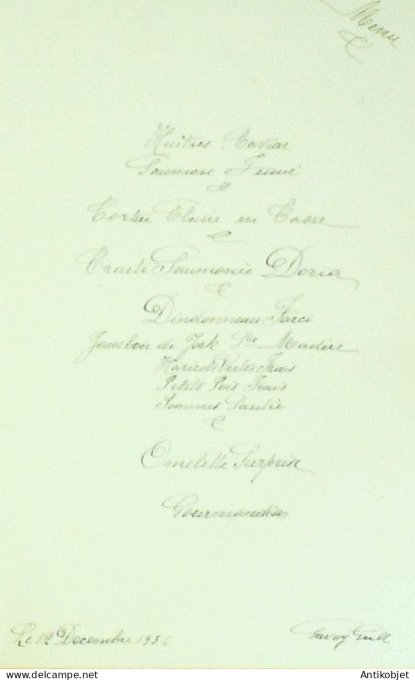 Menu
Huîtres Caviar
Saumon Fumé
Tortue Claire en Tasse
Truite Saumonée Doria
Dindonneau Farci
Jambon de York Sce Madère
Haricots Verts Frais
Petits Pois Frais
Pommes Sautée
Omelette Surprise
Gourmandises
Le 12 Decembre 1954
Antikobjet